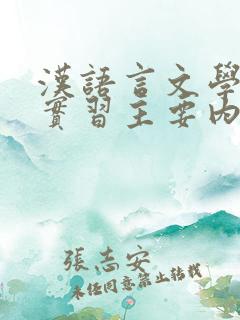 漢語言文學
實習主要內
張志安
未經同意禁止轉載